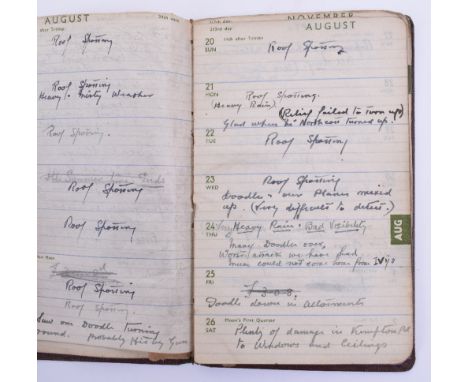 AUGUST
after Trinity
Roof Spotting
Roof Spotting
Heavy & Misty Weather
Roof Spotting.
Roof Spotting
Roof Spotting
Roof Spotting
Roof Spotting
Saw one Doodle turning
round. Probably Hit by Gun
NOVEMBER
AUGUST
20 11th after Trinity
SUN Roof Spotting
21
MON Roof Spotting.
(Heavy Rain) (Relief failed to turn up)
Glad when Northcott turned up.
22
TUE Roof Spotting
23 Roof Spotting
WED Doodle & our Planes mixed
up. (Very difficult to detect.)
24 Very Heavy Rain & Bad Visibility
THU Many Doodles over,
Worst attack we have had,
men could not even see from
AUG
25
FRI
Doodle down in Allotments
26 Moon's First Quarter
SAT Plenty of damage in Kempton Pk
to Windows and Ceilings